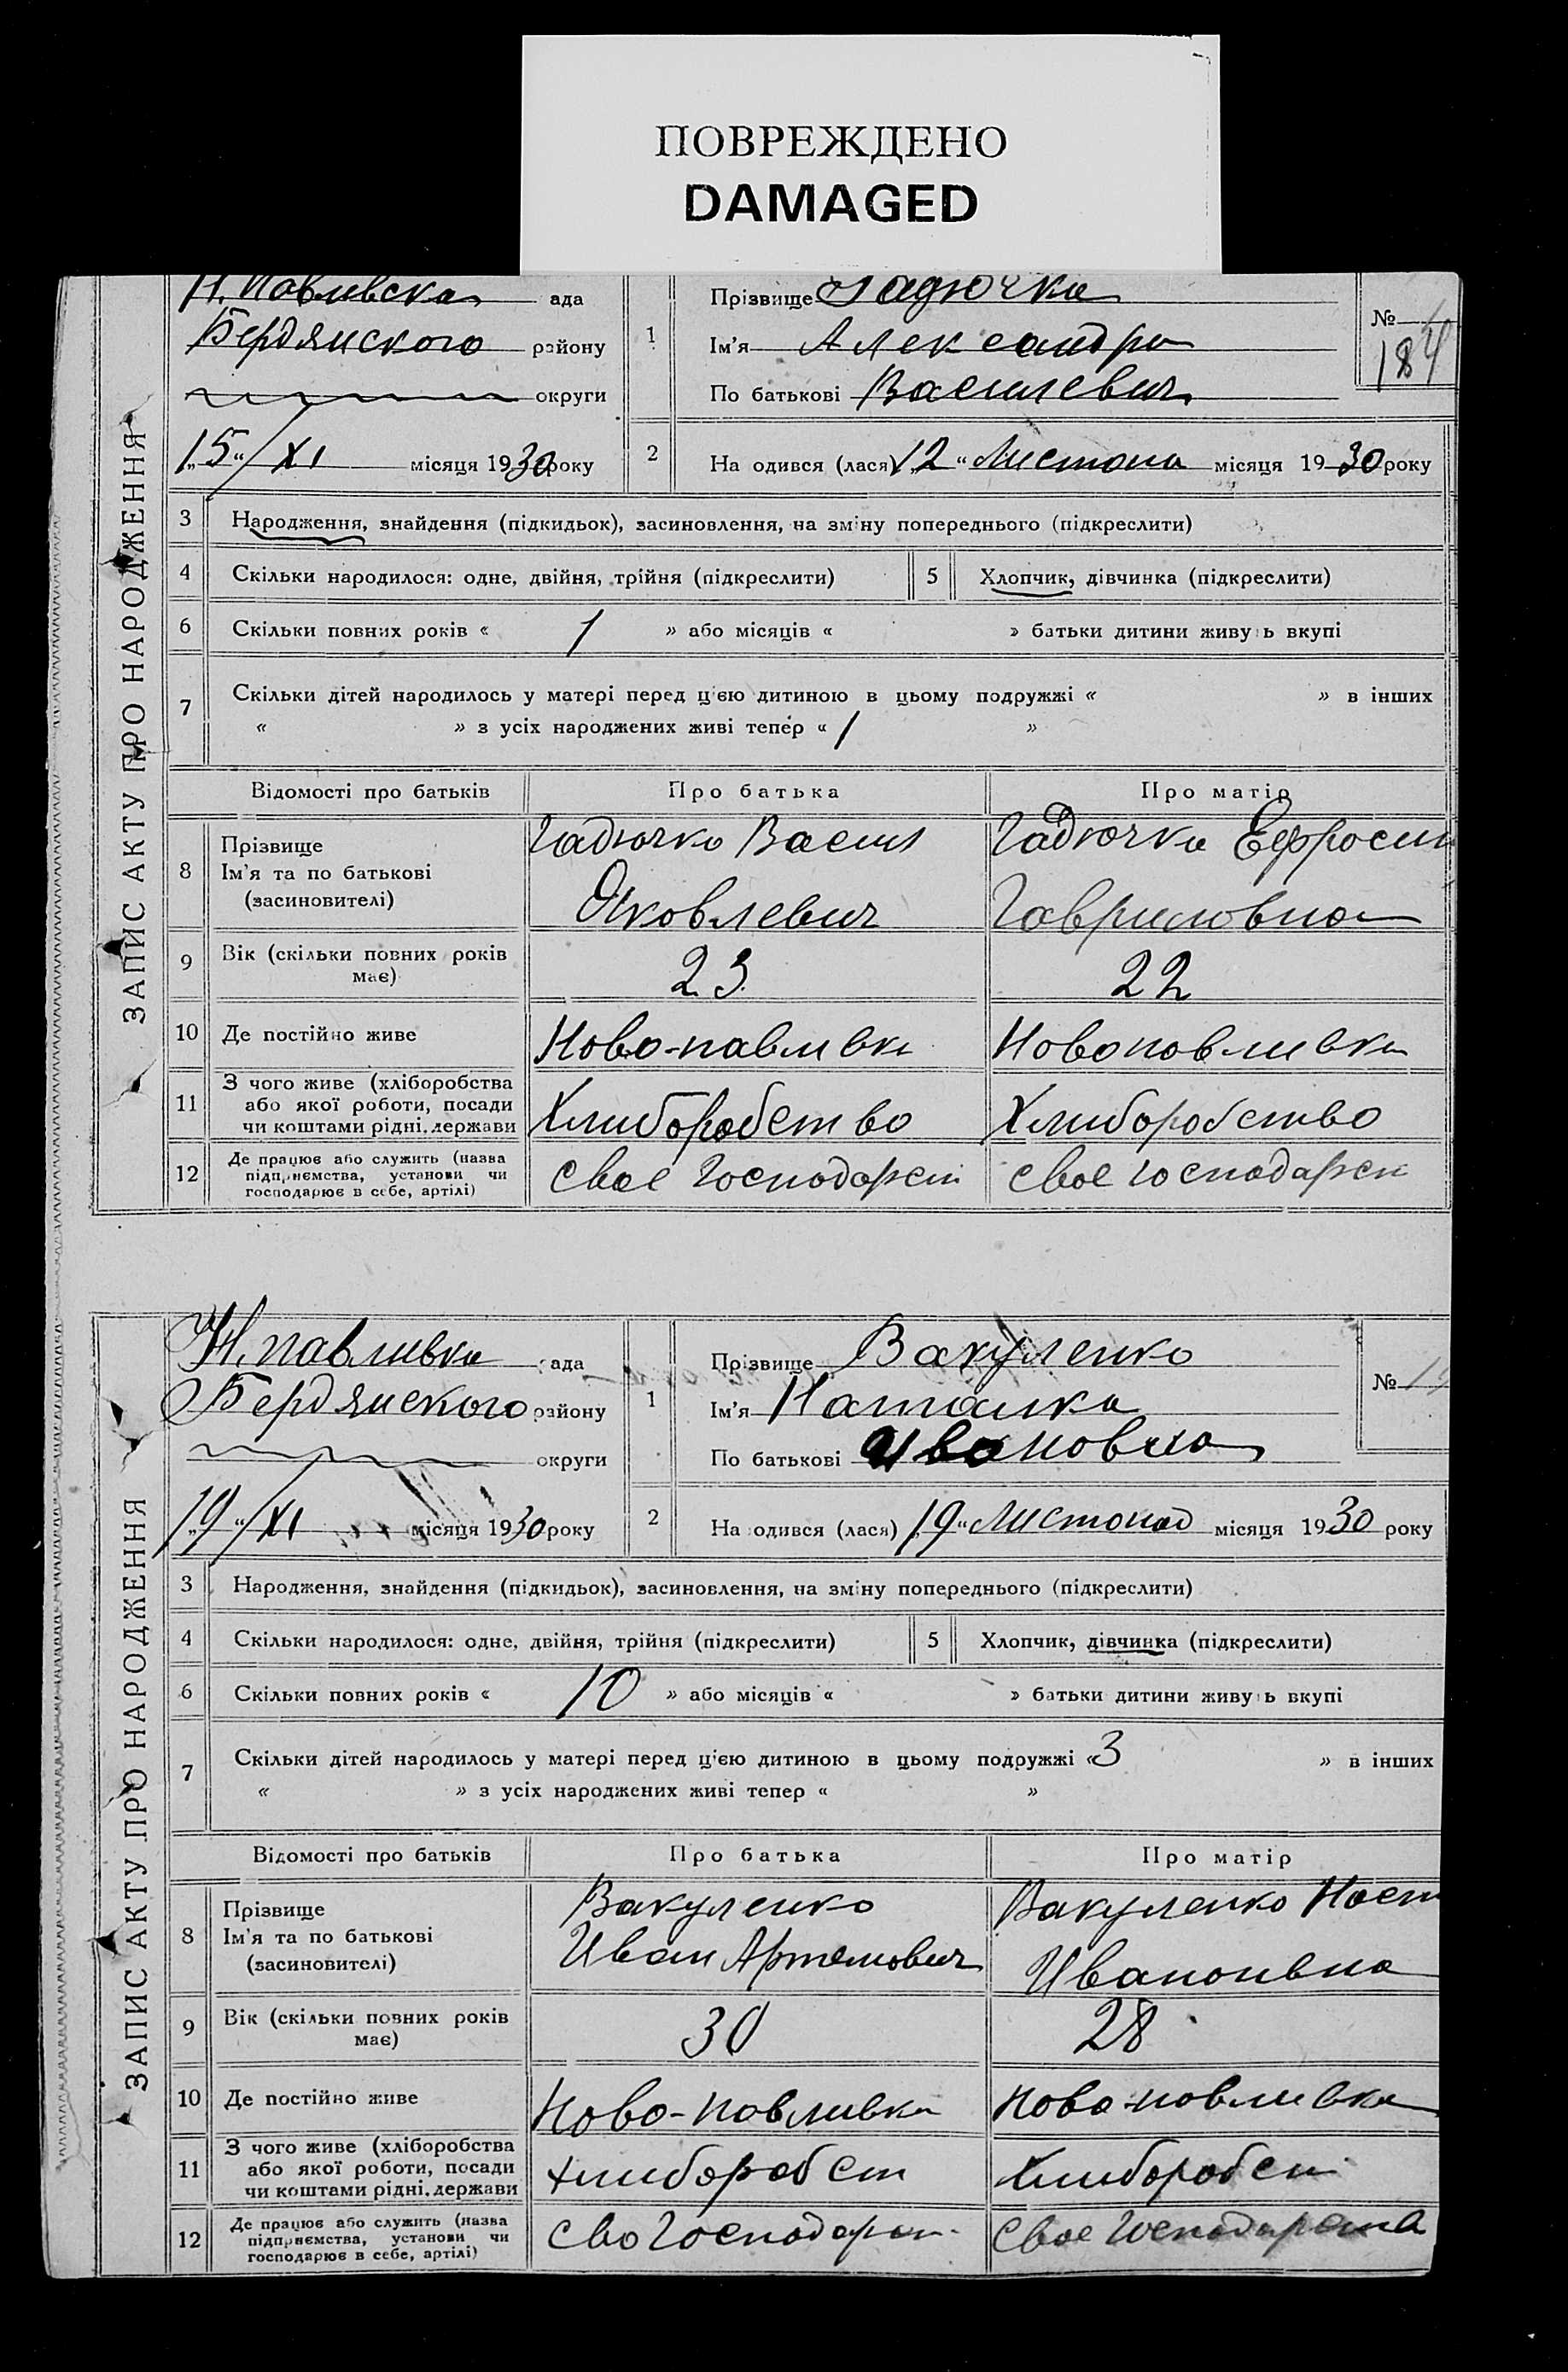 ПОВРЕЖДЕНО
DAMAGED
Н. Павливска ада
Бердянского району
округи
„15“/XI місяця 1930 року
1
Прізвище Гадючка
Ім'я Александр
По батькові Василевич
№
184
2
На одився (лася) „12“ Листопа місяця 1930 року
ЗАПИС АКТУ ПРО НАРОДЖЕННЯ
3 Народження, знайдення (підкидьок), засиновлення, на зміну попереднього (підкреслити)
4 Скільки народилося: одне, двійня, трійня (підкреслити) 5 Хлопчик, дівчинка (підкреслити)
6 Скільки повних років « 1 » або місяців « » батьки дитини живу ь вкупі
7 Скільки дітей народилось у матері перед цією дитиною в цьому подружжі « » в інших
« » з усіх народжених живі тепер « 1 »
Відомості про батьків Про батька Про матір
8 Прізвище
Ім'я та по батькові
(засиновителі)
Гадючко Васил
Яковлевич
Гадючка Ефросин
Гавриловна
9 Вік (скільки повних років
має)
23
22
10 Де постійно живе Ново-павливка Новоповливка
11 З чого живе (хліборобства
або якої роботи, посади
чи коштами рідні, держави
Хлиборобство
Хлиборобство
12 Де працює або служить (назва
підприємства, установи чи
господарює в себе, артілі)
Свое Господарст
Свое господарст
Н. павливка ада
Бердянского району
округи
„19“/XI місяця 1930 року
1
Прізвище Вакуленко
Ім'я Наталка
По батькові Ивановна
№
2
На одився (лася) „19“ Листопад місяця 1930 року
ЗАПИС АКТУ ПРО НАРОДЖЕННЯ
3 Народження, знайдення (підкидьок), засиновлення, на зміну попереднього (підкреслити)
4 Скільки народилося: одне, двійня, трійня (підкреслити) 5 Хлопчик, дівчинка (підкреслити)
6 Скільки повних років « 10 » або місяців « » батьки дитини живу ь вкупі
7 Скільки дітей народилось у матері перед цією дитиною в цьому подружжі « 3 » в інших
« » з усіх народжених живі тепер « »
Відомості про батьків Про батька Про матір
8 Прізвище
Ім'я та по батькові
(засиновителі)
Вакуленко
Иван Артемович
Вакуленко Наст
Ивановна
9 Вік (скільки повних років
має)
30
28
10 Де постійно живе Ново-повливка Ново-повливка
11 З чого живе (хліборобства
або якої роботи, посади
чи коштами рідні, держави
хлиборобст
Хлиборобст
12 Де працює або служить (назва
підприємства, установи чи
господарює в себе, артілі)
Сво Господар
Свое Господарства